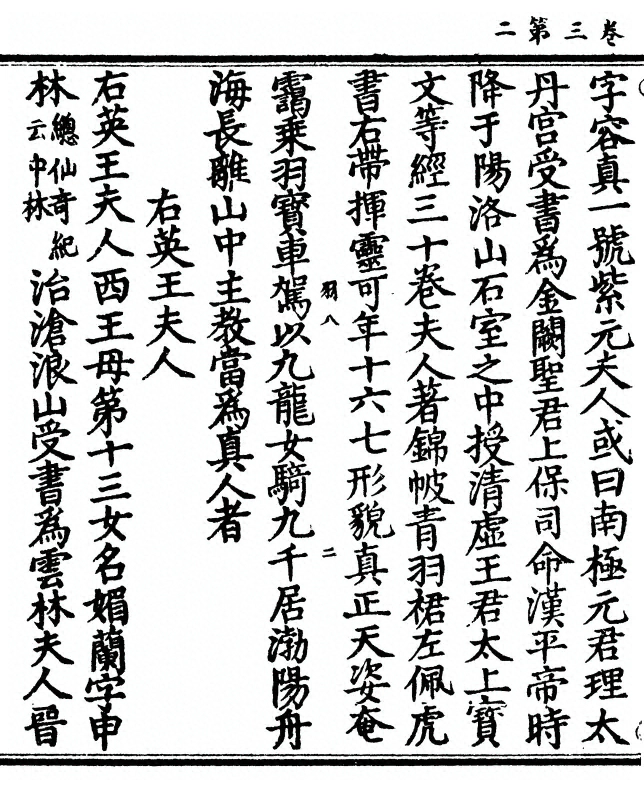 卷三第二
字容真一號紫元夫人或曰南極元君理太
丹宮受書為金闕聖君上保司命漢平帝時
降于陽洛山石室之中授清虛王君太上寶
文等經三十卷夫人著錦帔青羽裙左佩虎
書右帶揮靈可年十六七形貌真正天姿奄
羽八
二
靄乗羽寶車駕以九龍女騎九千居渤陽丹
海長離山中主教當為真人者
右英王夫人
右英王夫人西王母第十三女名媚蘭字申
林總仙奇紀云中林治滄浪山受書為雲林夫人晉